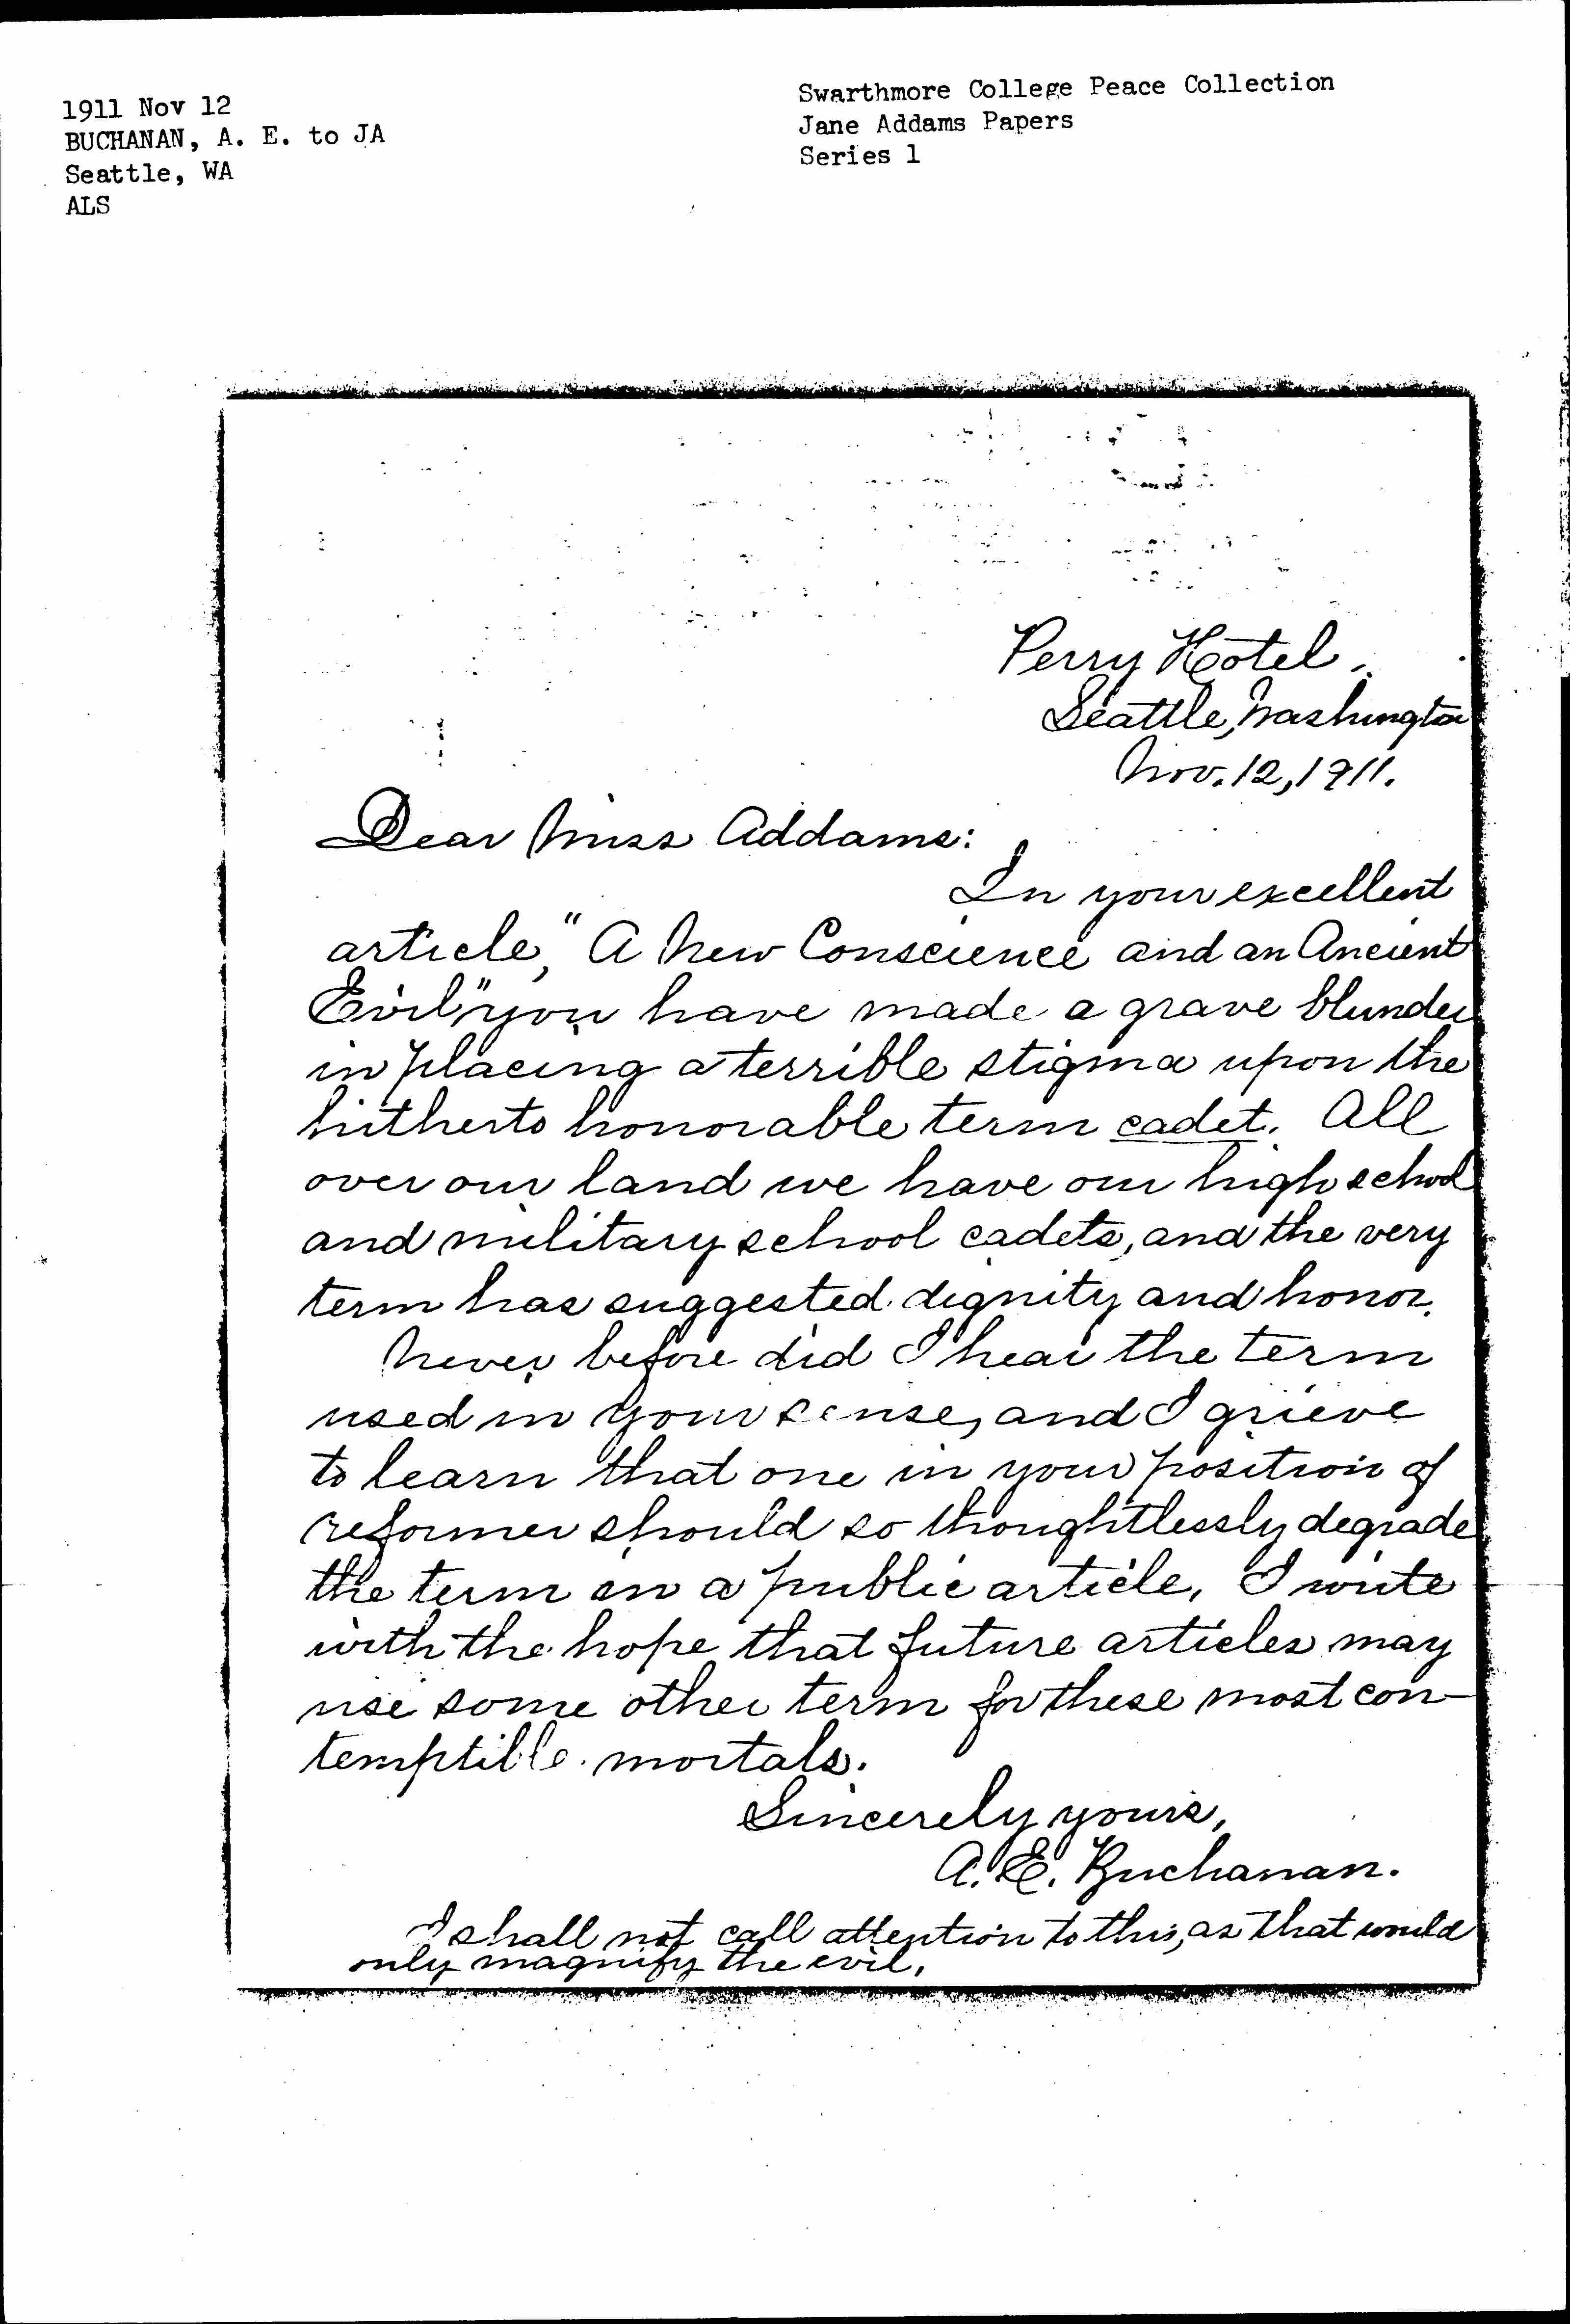 1911 Nov 12
BUCHANAN, A. E. to JA
Seattle, WA
ALS
Swarthmore College Peace Collection
Jane Addams Papers
Series 1
Perry Hotel,
Seattle, Washington
Nov. 12, 1911.
Dear Miss Addams:
In your excellent
article, "A New Conscience and an Ancient
Evil" you have made a grave blunder
in placing a terrible stigma upon the
hitherto honorable term cadet. All
over our land we have our high school
and military school cadets, and the very
term has suggested dignity and honor.
Never before did I hear the term
used in your sense, and I grieve
to learn that one in your position of
reformer should so thoughtlessly degrade
the term in a public article. I write
with the hope that future articles may
use some other term for these most con-
temptible mortals.
Sincerely yours,
A. E. Buchanan.
I shall not call attention to this, as that would
only magnify the evil.